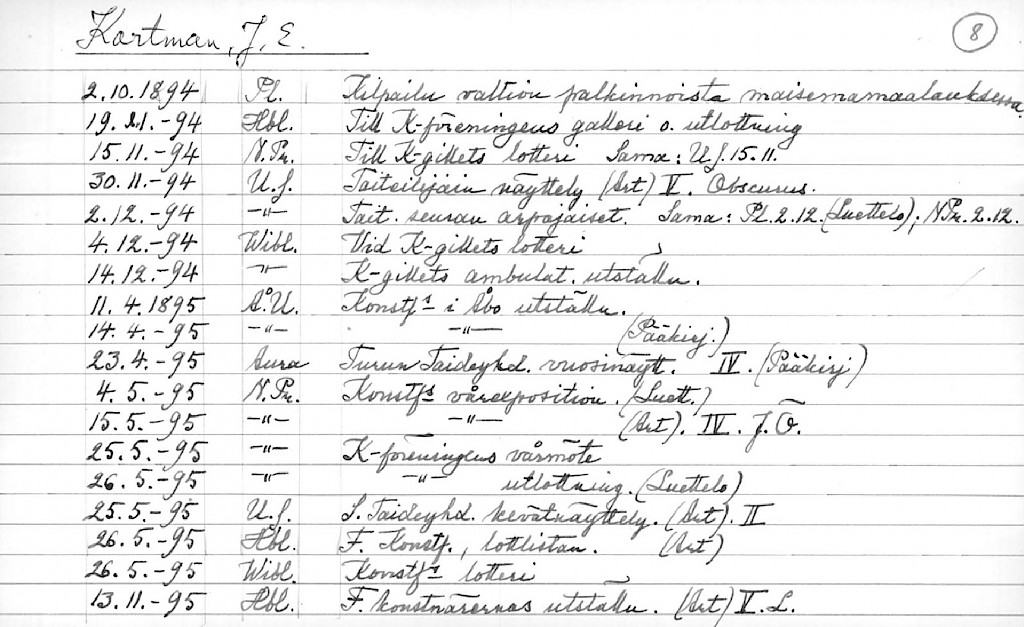 Kortman, J. E.
8
2.10.1894 Pl. Kilpailu valtion palkinnoista maisemamaalauksessa.
19.11.-94 Hbl. Till K-föreningens galleri o. utlottning
15.11.-94 N.Pr. Till K-gillets lotteri Sama: U.S. 15.11.
30.11.-94 U.S. Taiteilijain näyttely (Art) V. Obscurus.
2.12.-94 -"- Tait. seuran arpajaiset. Sama: Pl. 2.12. (Luettelo); N.Pr. 2.12.
4.12.-94 Wibl. Vid K-gillets lotteri
14.12.-94 -"- K-gillets ambulat. utställn.
11.4.1895 Å.U. Konstfs i Åbo utställn.
14.4.-95 -"- -"- (Pääkirj.)
23.4.-95 Aura Turun Taideyhd. vuosinäytt. IV. (Pääkirj)
4.5.-95 N.Pr. Konstfs vårexposition. (Luett.)
15.5.-95 -"- -"- (Art). IV. J.Ö.
25.5.-95 -"- K-föreningens vårmöte
26.5.-95 -"- -"- utlottning. (Luettelo)
25.5.-95 U.S. S. Taideyhd. kevätnäyttely. (Art). II
26.5.-95 Hbl. F. Konstf., lottlistan. (Art)
26.5.-95 Wibl. Konstfs lotteri
13.11.-95 Hbl. F. konstnärernas utställn. (Art) V. L.